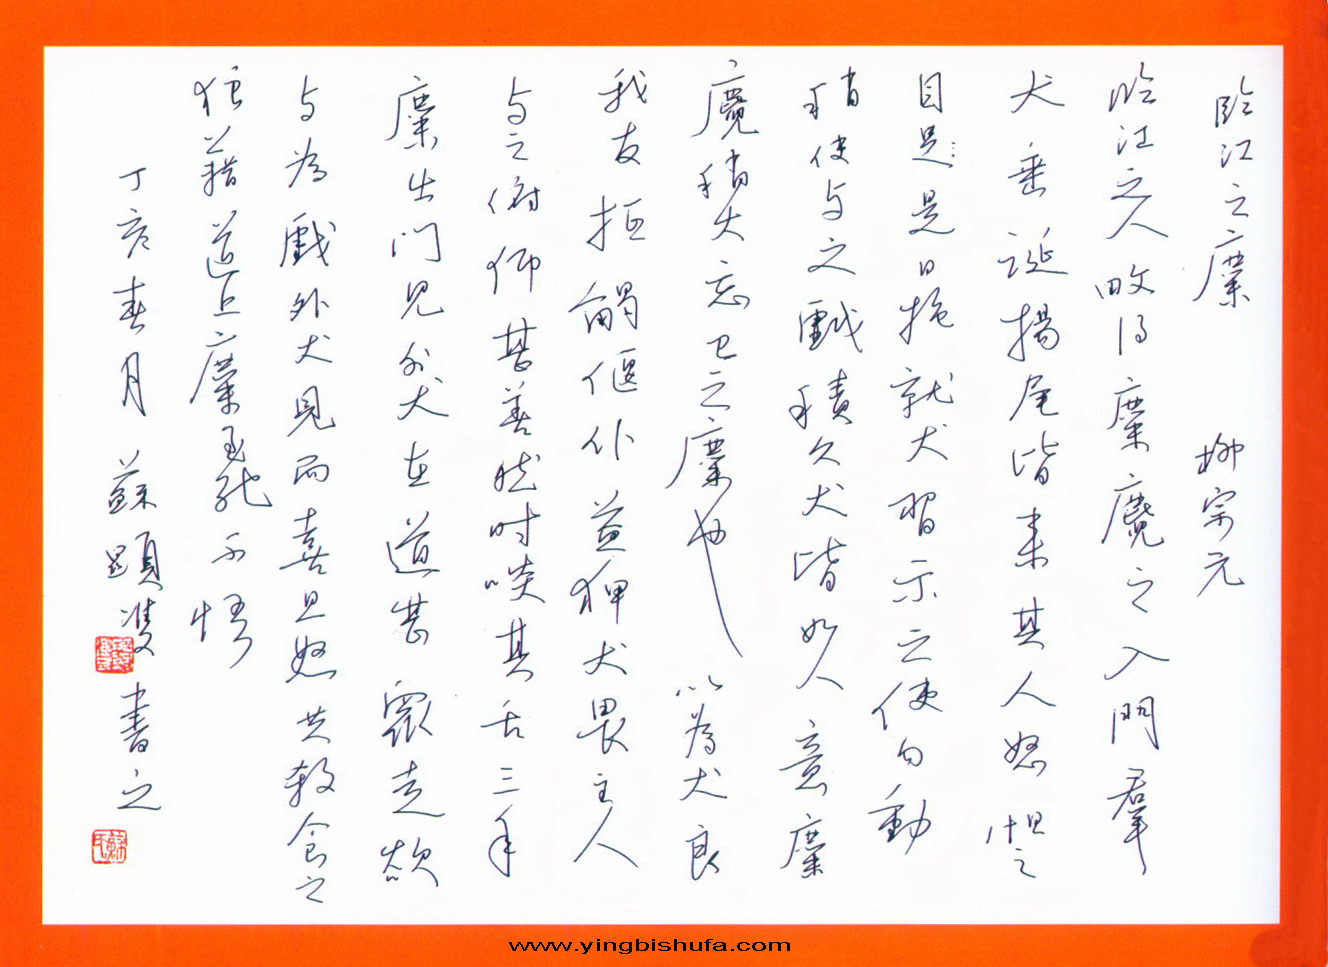 臨江之麋 柳宗元
临江之人畋得麋麑之入門羣
犬垂诞揚尾皆来其人怒怛之
自是是日抱就犬習示之使勿動
稍使与之戲積久犬皆如人意麋
麑稍大忘己之麋也 以為犬良
我友抵觸偃仆益狎犬畏主人
与之俯仰甚善然时啖其舌三年
麋出门見外犬在道甚眾走欲
与為戲外犬見而喜且怒共殺食之
狼藉道上麋至死不悟
丁亥春月蘇顯雙書之
www.yingbishufa.com